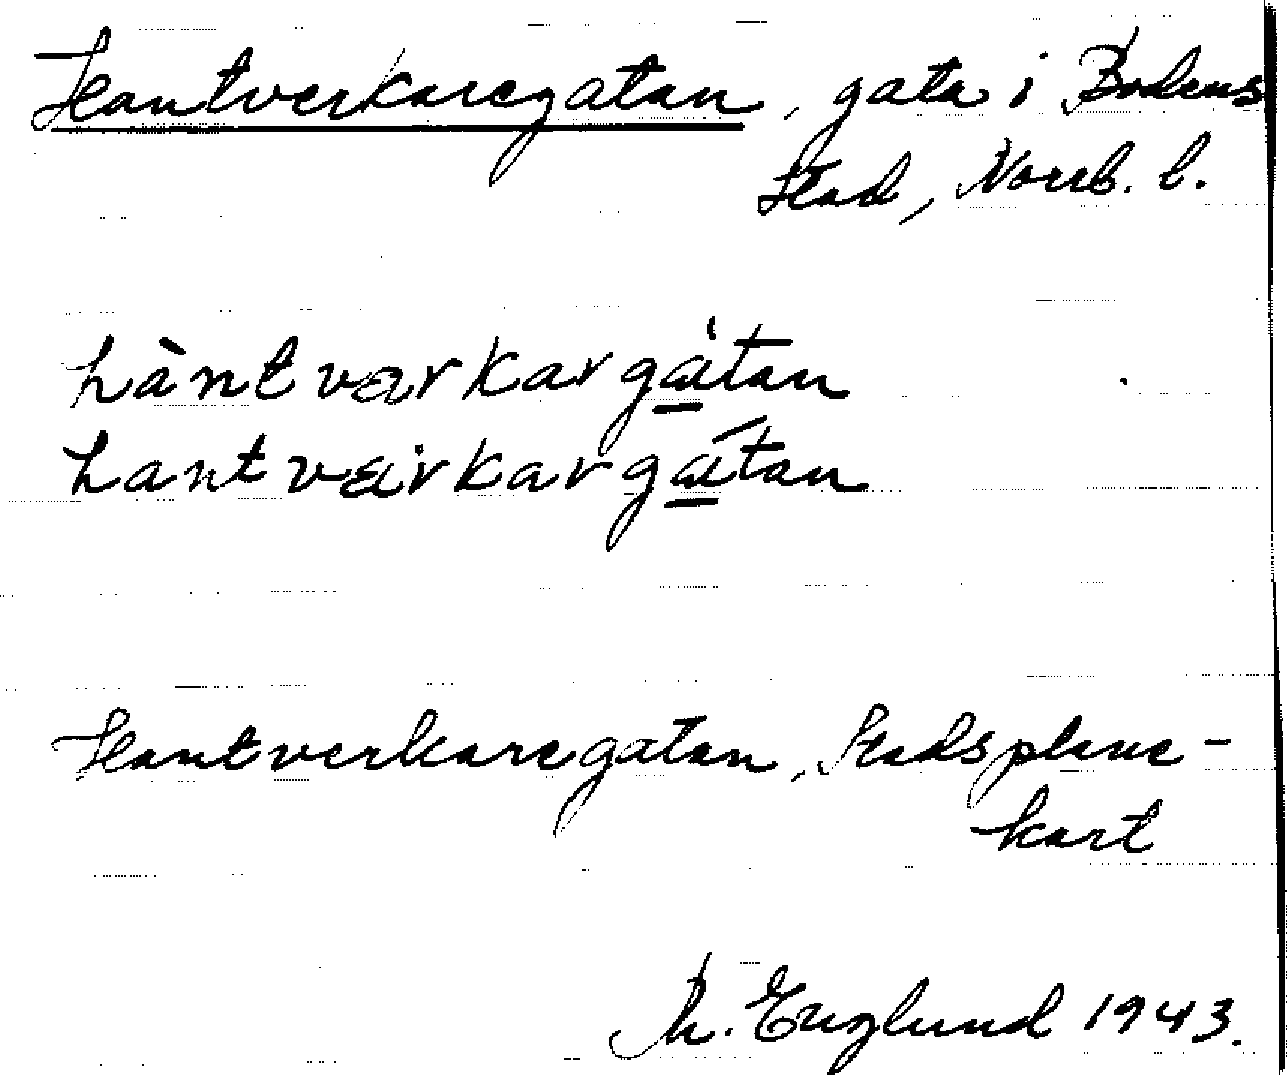 Hantverkaregatan, gata i Bodens
stad, Norrb. l.
hàntværkarga̱̍tan
hantvæ̍rkargá̱tan
Hantverkaregatan, Stadsplane-
kart
Th. Englund 1943.